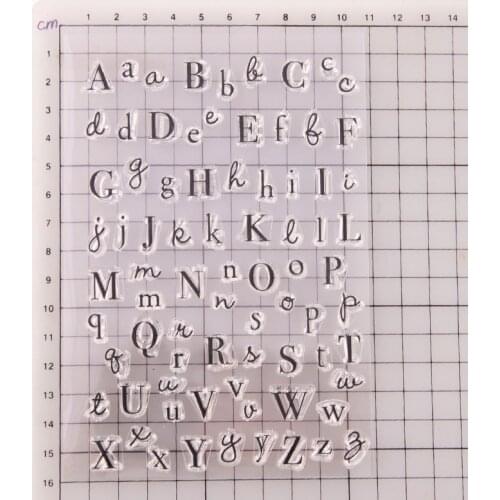 cm 1 2 3 4 5 6 7 8 9 10 11 12 13 14
1
2 A a a B b b C c c
3
4 d d D e e E f f F
5
6 G g g H h h i I i
7 j j J k k K l l L
8
9 M m m N n n O o o P
10
11 q Q r s p p
12 q r R s S t T
13
14 t U u u V v v W w w
15
16 X x x Y y y Z z z